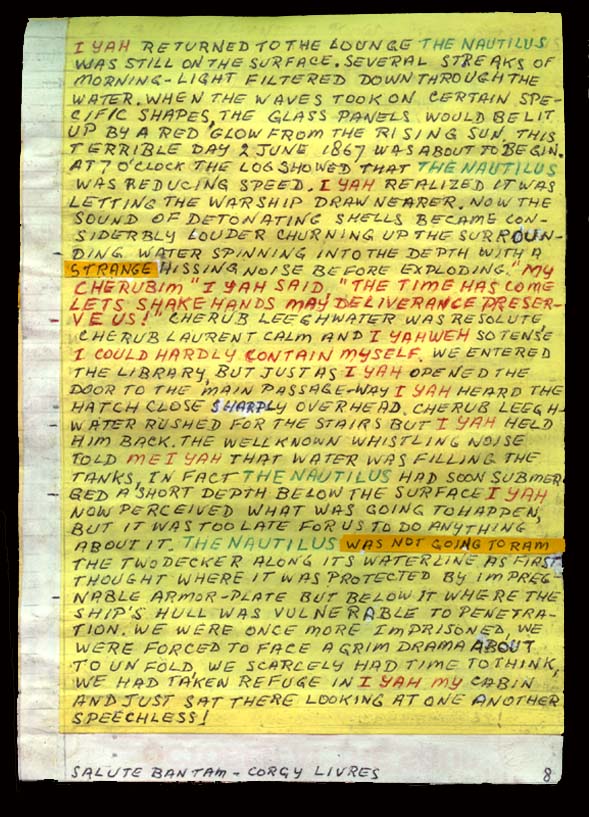 I YAH RETURNED TO THE LOUNGE THE NAUTILUS
WAS STILL ON THE SURFACE. SEVERAL STREAKS OF
MORNING-LIGHT FILTERED DOWN THROUGH THE
WATER. WHEN THE WAVES TOOK ON CERTAIN SPE-
CIFIC SHAPES, THE GLASS PANELS WOULD BE LIT
UP BY A RED GLOW FROM THE RISING SUN. THIS
TERRIBLE DAY 2 JUNE 1867 WAS ABOUT TO BEGIN.
AT 7 O'CLOCK THE LOG SHOWED THAT THE NAUTILUS
WAS REDUCING SPEED. I YAH REALIZED IT WAS
LETTING THE WARSHIP DRAW NEARER. NOW THE
SOUND OF DETONATING SHELLS BECAME CON-
SIDERBLY LOUDER CHURNING UP THE SURROUN-
DING WATER SPINNING INTO THE DEPTH WITH A
STRANGE HISSING NOISE BEFORE EXPLODING. "MY
CHERUBIM" I YAH SAID, "THE TIME HAS COME
LETS SHAKE HANDS MAY DELIVERANCE PRESER-
VE US!" CHERUB LEEGHWATER WAS RESOLUTE,
CHERUB LAURENT CALM AND I YAHWEH SO TENSE
I COULD HARDLY CONTAIN MYSELF. WE ENTERED
THE LIBRARY, BUT JUST AS I YAH OPENED THE
DOOR TO THE MAIN PASSAGE-WAY I YAH HEARD THE
HATCH CLOSE SHARPLY OVERHEAD. CHERUB LEEGH-
WATER RUSHED FOR THE STAIRS BUT I YAH HELD
HIM BACK. THE WELL KNOWN WHISTLING NOISE
TOLD ME I YAH THAT WATER WAS FILLING THE
TANKS, IN FACT THE NAUTILUS HAD SOON SUBMER
GED A SHORT DEPTH BELOW THE SURFACE I YAH
NOW PERCEIVED WHAT WAS GOING TO HAPPEN,
BUT IT WAS TOO LATE FOR US TO DO ANYTHING
ABOUT IT. THE NAUTILUS WAS NOT GOING TO RAM
THE TWO DECKER ALONG ITS WATERLINE AS FIRST
THOUGHT WHERE IT WAS PROTECTED BY IMPREG-
NABLE ARMOR-PLATE BUT BELOW IT WHERE THE
SHIP'S HULL WAS VULNERABLE TO PENETRA-
TION. WE WERE ONCE MORE IMPRISONED, WE
WERE FORCED TO FACE A GRIM DRAMA ABOUT
TO UNFOLD, WE SCARCELY HAD TIME TO THINK,
WE HAD TAKEN REFUGE IN I YAH MY CABIN
AND JUST SAT THERE LOOKING AT ONE ANOTHER
SPEECHLESS!
SALUTE BANTAM - CORGY LIVRES 8